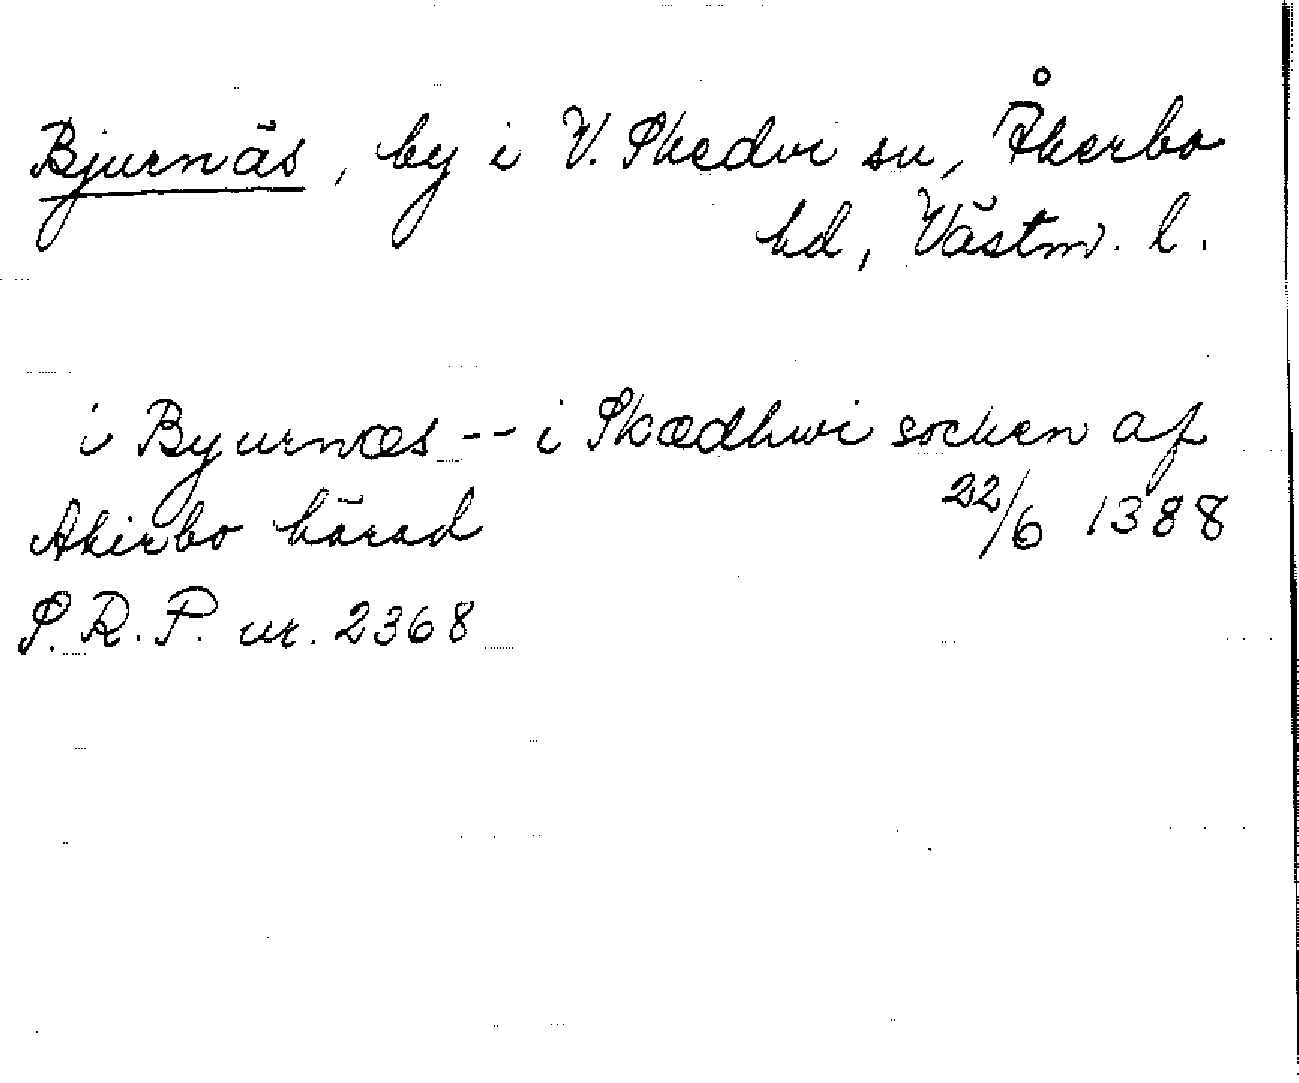 Bjurnäs, by i V. Skedvi sn, Åkerbo
hd, Västm. l.
i Byurnæs -- i Skædhwi socken af
Akirbo härad 22/6 1388
S.R.P. nr. 2368